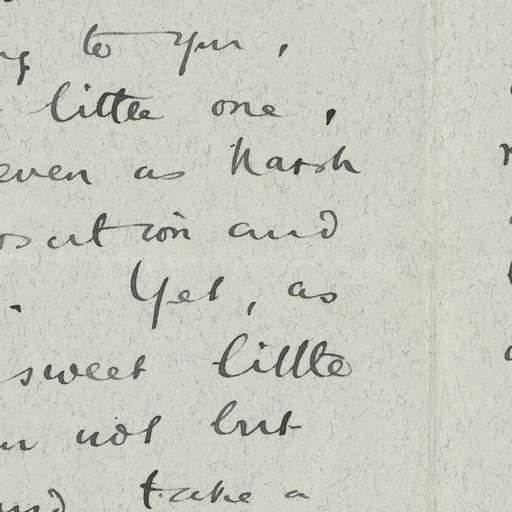 to you,
little one,
even as harsh
and
. Yet, as
sweet little
not but
take a